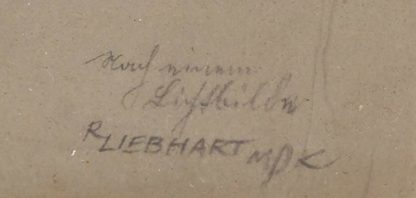 Nach einem
Lichtbilde
R LIEBHART MDK